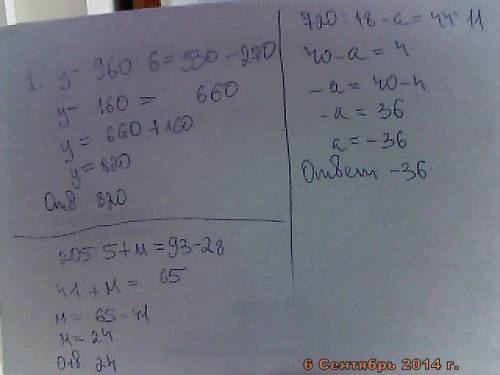 1. y - 960 6 = 930 - 270
y - 160 = 660
y = 660 + 160
y = 820
Отв 820
205 5 + м = 93 - 28
41 + м = 65
м = 65 - 41
м = 24
Отв. 24
720 : 18 - a = 44 : 11
40 - a = 4
- a = 40 - 4
- a = 36
a = - 36
Ответ - 36
6 Сентябрь 2014 г.